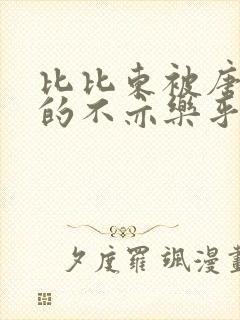 比比东被唐
的不亦樂乎
夕度羅颯漫畫